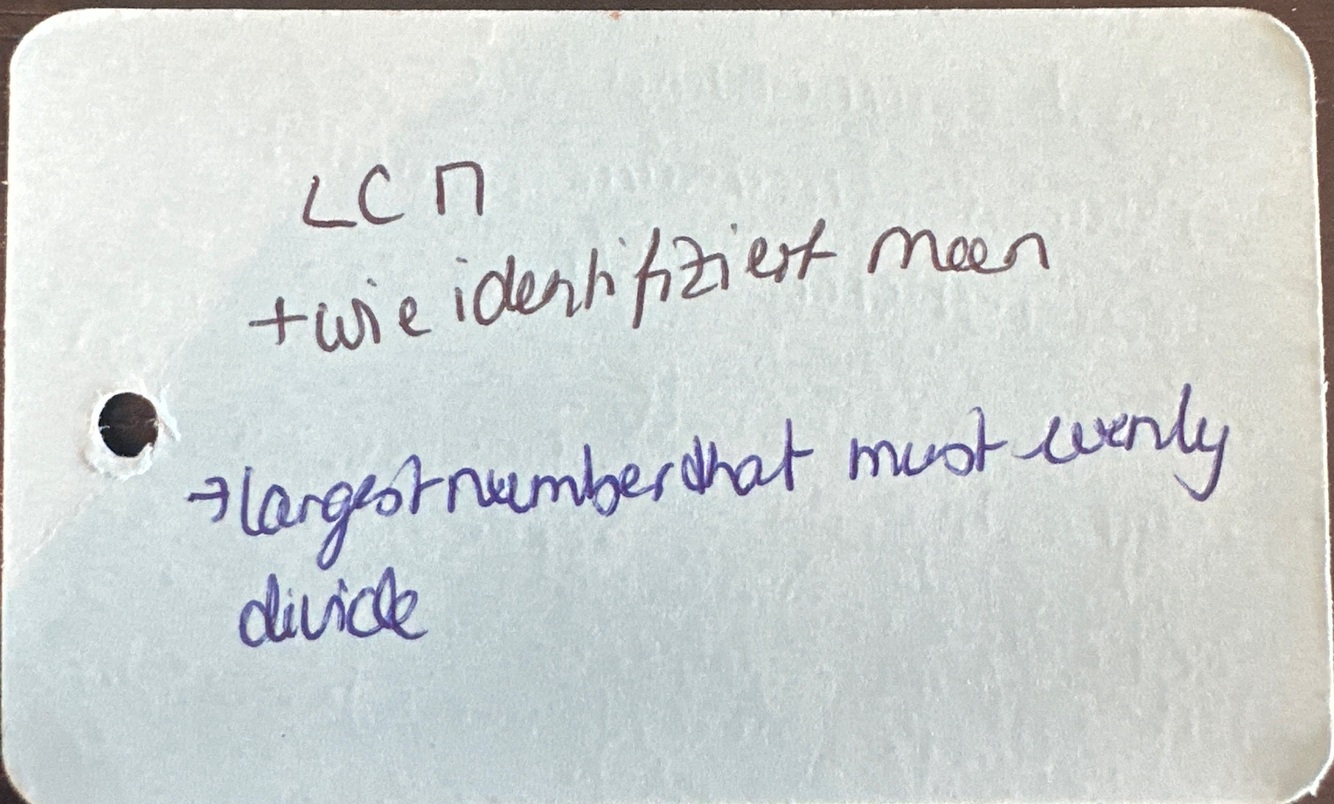 LCM
+ wie identifiziert man
→ largest number that must evenly
divide